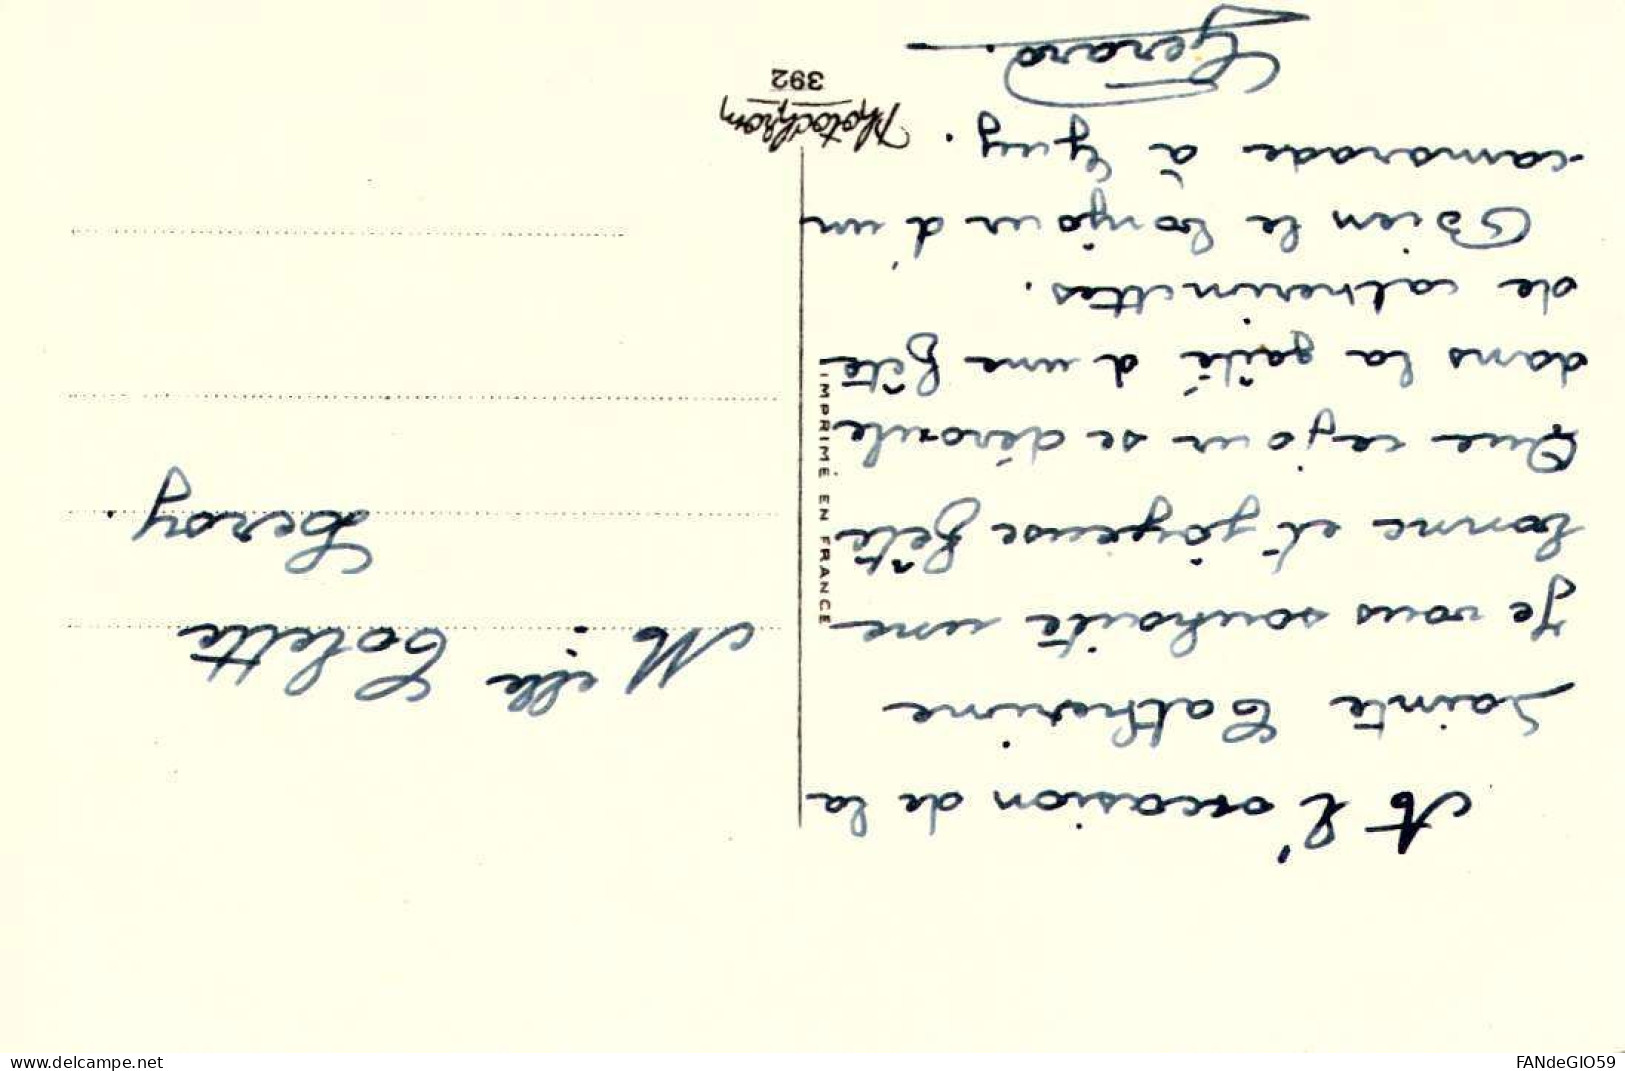 A l'occasion de la
Sainte Catherine
Je vous souhaite une
bonne et joyeuse fête
Que ce jour se déroule
dans la gaîté d'une fête
de catherinettes.
Bien le bonjour d'un
camarade à Guy.
Gérard.
M elle Colette
Leroy.
Photochrom
392
IMPRIMÉ EN FRANCE
www.delcampe.net
FANdeGIO59